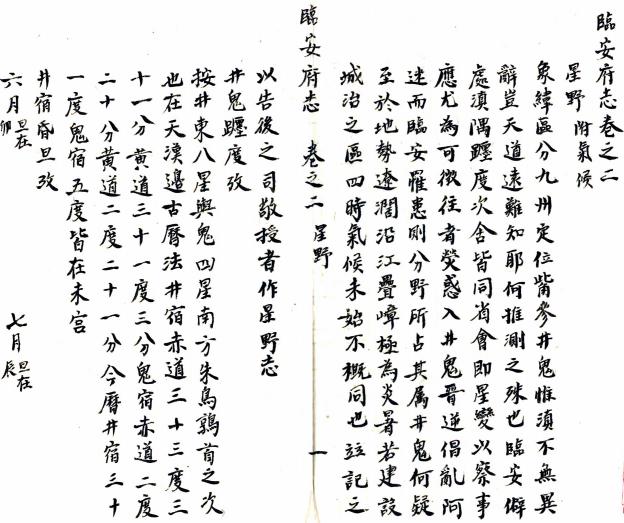 臨安府志卷之二
星野 附氣候
象緯區分九州定位觜參井鬼惟滇不無異
辭豈天道遠難知耶何推測之殊也臨安僻
處滇隅躔度次舍皆同省會即星變以察事
應尤為可徵往者熒惑入井鬼晋逆倡亂阿
迷而臨安罹患則分野所占其属井鬼何疑
至於地勢遼濶沿江疊嶂極為炎暑若建設
城治之區四時氣候未始不概同也竝記之
臨安府志 卷之二 星野 一
以告後之司敬授者作星野志
井鬼躔度攷
按井東八星與鬼四星南方朱鳥鶉首之次
也在天漢邉古曆法井宿赤道三十三度三
十一分黄道三十一度三分鬼宿赤道二度
二十分黄道二度二十一分今曆井宿三十
一度鬼宿五度皆在未宫
井宿昏旦攷
六月旦在卯 七月旦在辰